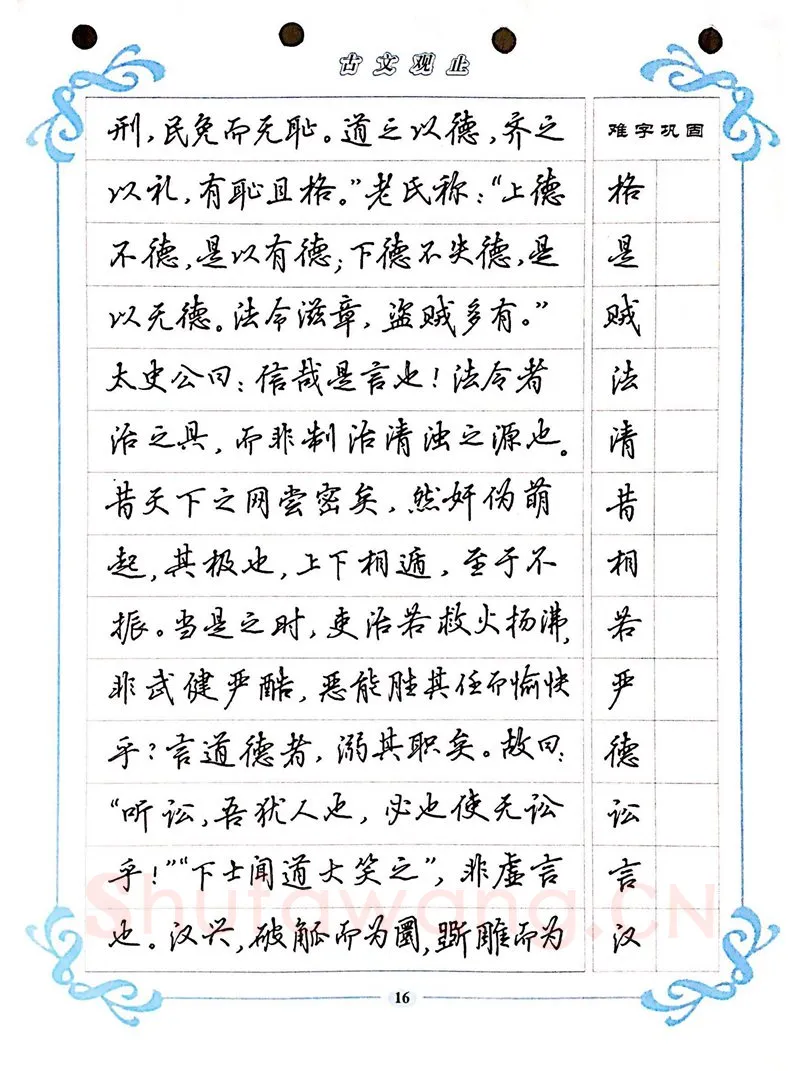 古文观止
刑，民免而无耻。道之以德，齐之
以礼，有耻且格。”老氏称：“上德
不德，是以有德；下德不失德，是
以无德。法令滋章，盗贼多有。”
太史公曰：信哉是言也！法令者
治之具，而非制治清浊之源也。
昔天下之网尝密矣，然奸伪萌
起，其极也，上下相遁，至于不
振。当是之时，吏治若救火扬沸，
非武健严酷，恶能胜其任而愉快
乎？言道德者，溺其职矣。故曰：
“听讼，吾犹人也，必也使无讼
乎！”“下士闻道大笑之”，非虚言
也。汉兴，破觚而为圜，斲雕而为
难字巩固
格
是
贼
法
清
昔
相
若
严
德
讼
言
汉
Shufawang.CN
16